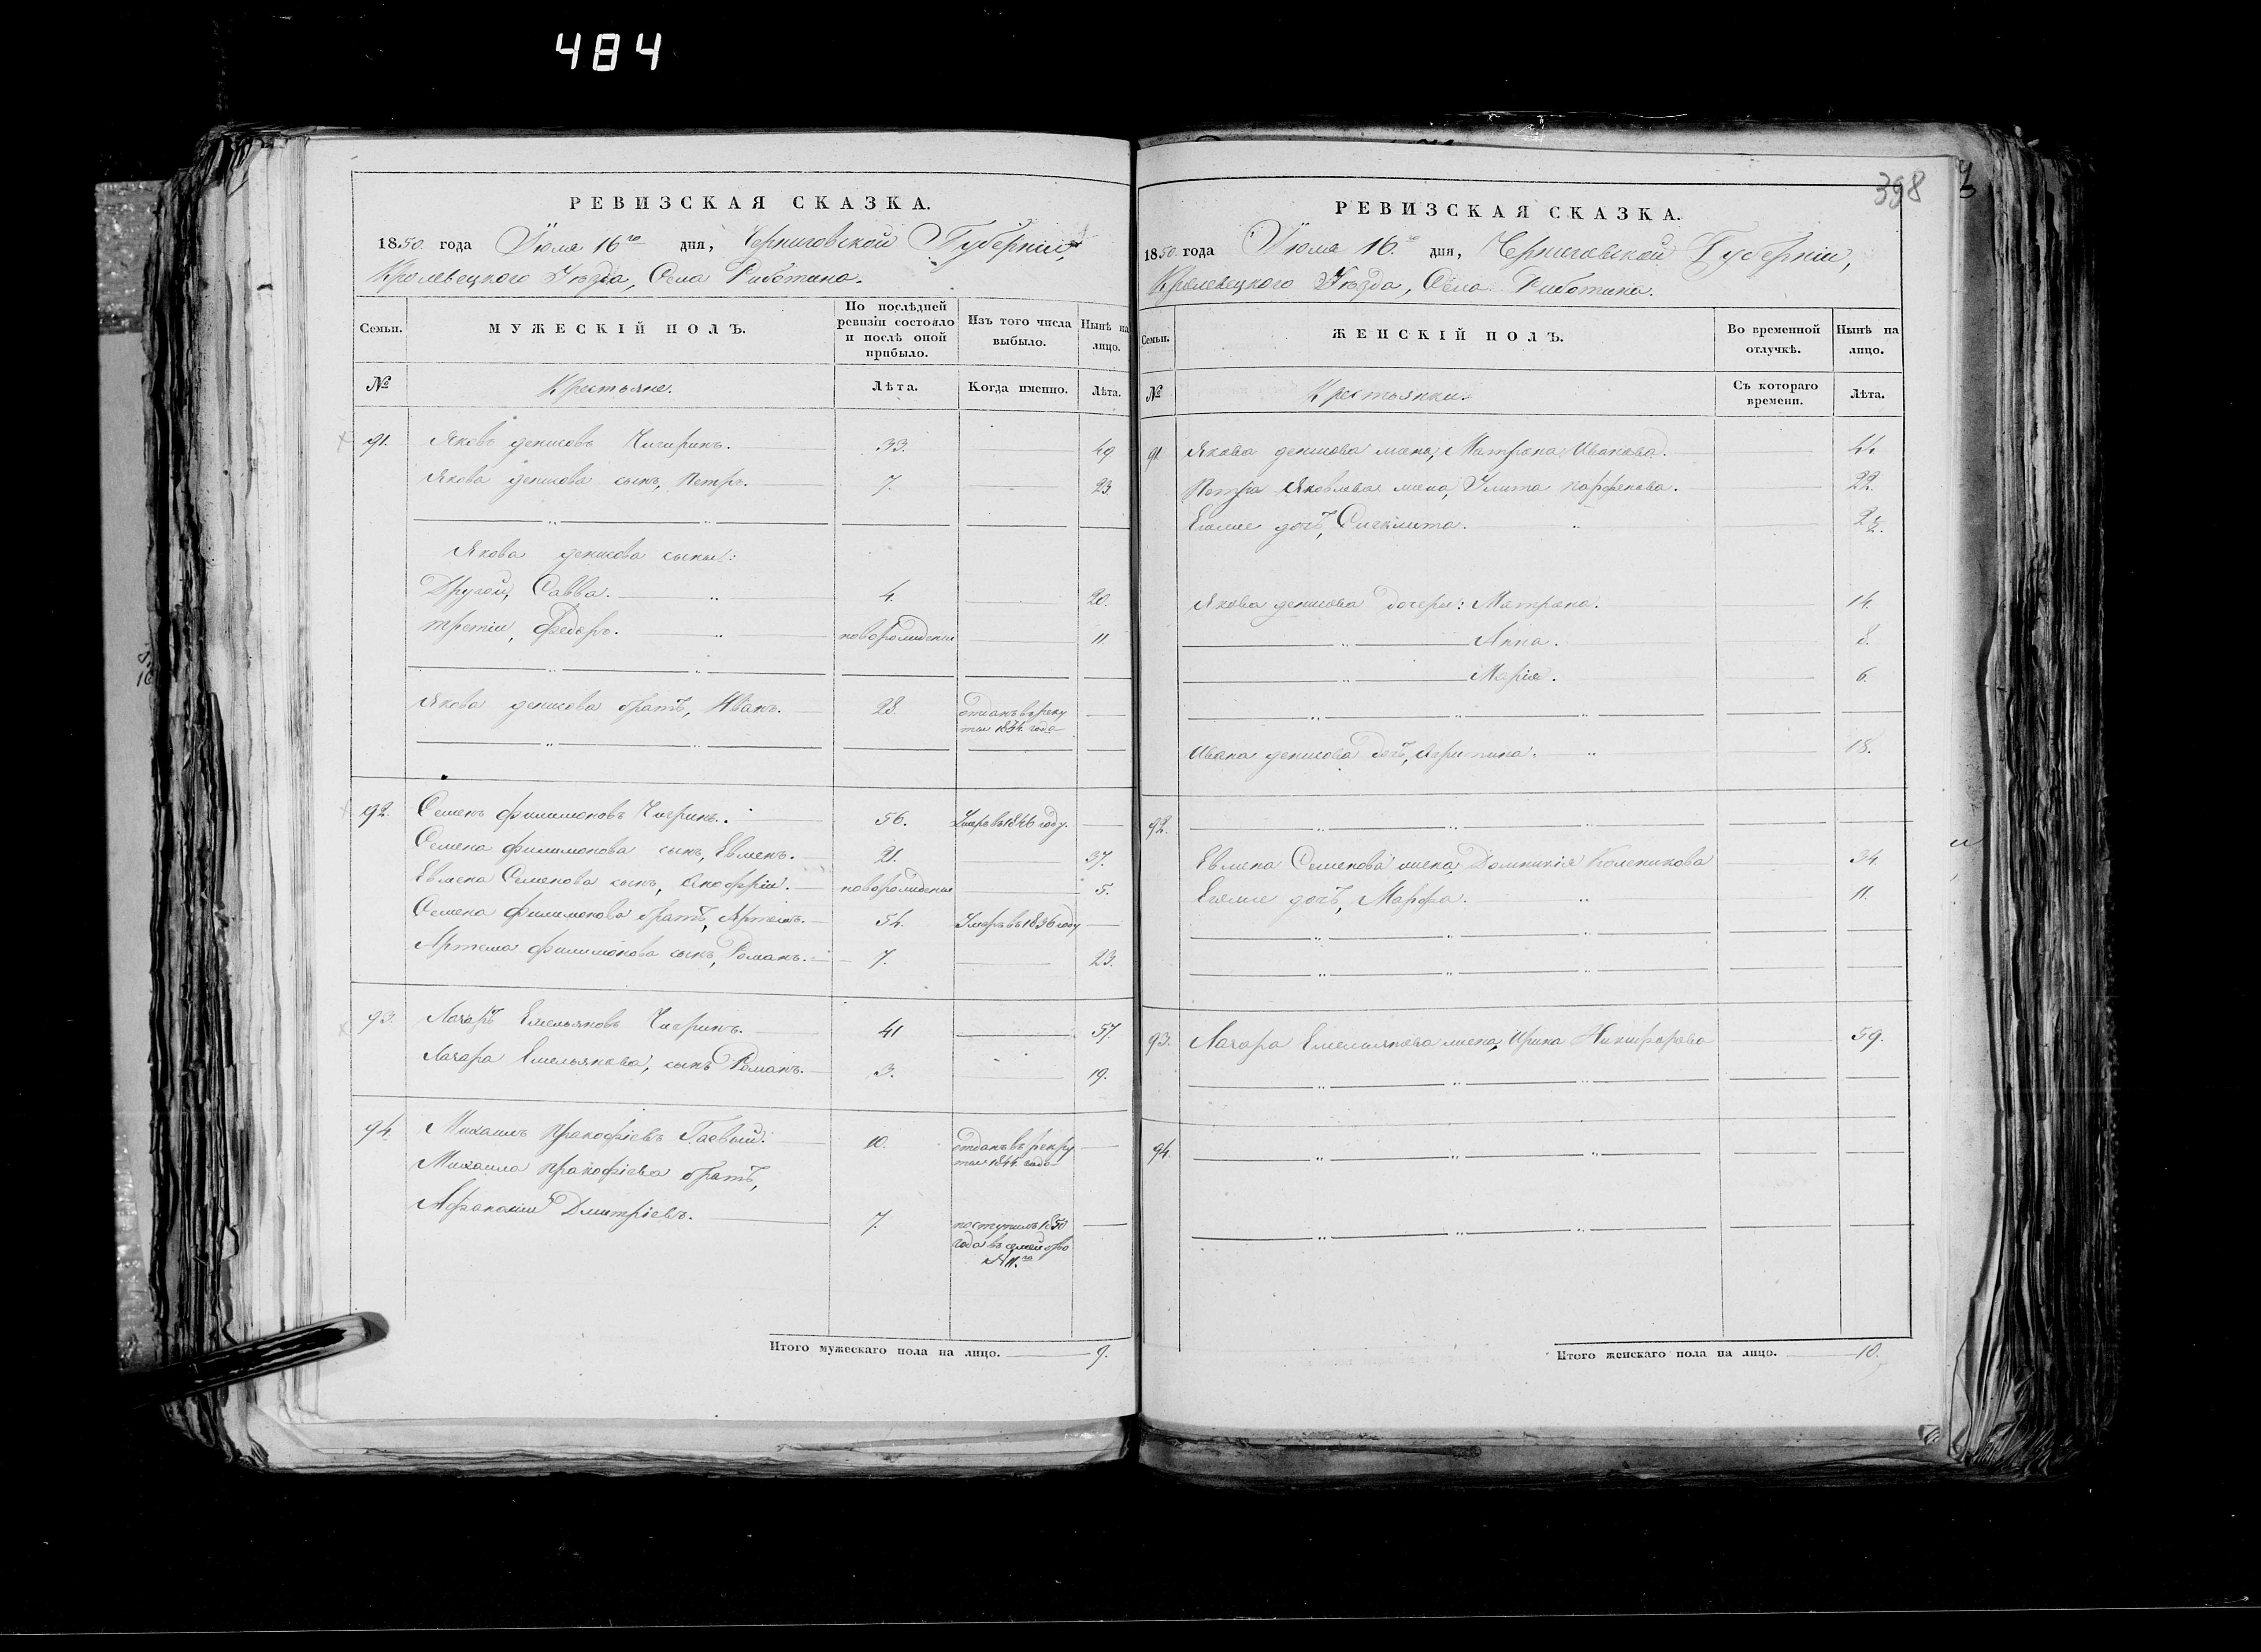 484
РЕВИЗСКАЯ СКАЗКА.
1850 года Іюля 16го дня, Черниговской Губерніи,
Кролевецкого Уѣзда, Села Риботина.
Семьи. МУЖЕСКІЙ ПОЛЪ. По послѣдней ревизіи состояло и послѣ оной прибыло. Изъ того числа выбыло. Нынѣ на лицо.
№ Крестьяне. Лѣта. Когда именно. Лѣта.
91. Яковъ денисовъ Чигринъ. 33. 49
Якова денисова сынъ, Петръ. 7. 23.
Якова денисова сыны:
Другой, Савва. 4. 20.
третіи, Федоръ. новорожденъ 11
Якова денисова братъ, Иванъ. 28. отданъ в рекруты 1834. года
92. Семенъ филимоновъ Чигринъ. 56. Умеръ въ 1846 году.
Семена филимонова сынъ, Евменъ. 21. 37.
Евмена Семенова сынъ, Анофрій. новорожденъ 5.
Семена филимонова братъ, Артемъ. 54. Умеръ въ 1836 году
Артема филимонова сынъ, Романъ. 7. 23.
93. Лазарь Емельяновъ Чигринъ. 41 57.
Лазаря Емельянова, сынъ Романъ. 3. 19.
94. Михаилъ Прокофіевъ Гаевый. 10. отданъ въ рекруты 1844. года
Михаила Прокофіева братъ,
Афанасіи Дмитріевъ. 7. поступилъ 1850
года въ семейство
№ 11.го
Итого мужескаго пола на лицо. 9.
398
РЕВИЗСКАЯ СКАЗКА.
1850 года Іюля 16. дня, Черниговской Губерніи,
Кролевецкого Уѣзда, Села Риботина.
Семьи. ЖЕНСКІЙ ПОЛЪ. Во временной отлучкѣ. Нынѣ на лицо.
№ Крестьянки. Съ котораго времени. Лѣта.
91 Якова денисова жена, Матрона Иванова. 44
Петра Яковлева жена, Улита парфенова. 22.
Ихже дочь,
Якова денисова дочери: Матрона. 14.
Анна. 8.
Марія. 6.
Ивана денисова дочь, Агрипина. 18.
92.
Евмена Семенова жена, Домникія 34
Ихже дочь, Марфа. 11.
93. Лазаря Емельянова жена, Ирина Никифорова 59.
94.
Итого женскаго пола на лицо. 10.